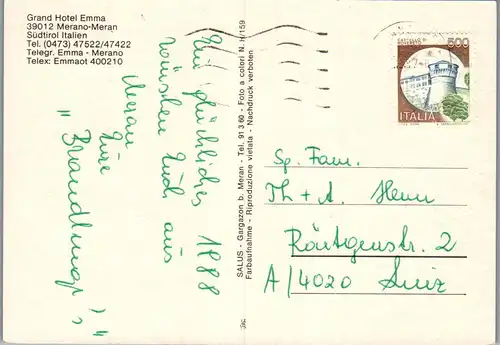 Grand Hotel Emma
39012 Merano-Meran
Südtirol Italien
Tel. (0473) 47522/47422
Telegr. Emma - Merano
Telex: Emmaot 400210
Ein glückliches 1988
wünschen Euch aus
Meran
Eure
"Brandlmayr's"
SALUS - Gargazon b. Meran - Tel. 91 3 60 - Foto a colori N. H/159
Farbaufnahme - Riproduzione vietata - Nachdruck verboten
500
ITALIA
Sp. Fam.
Th + A. Henn
Röntgenstr. 2
A/4020 Linz